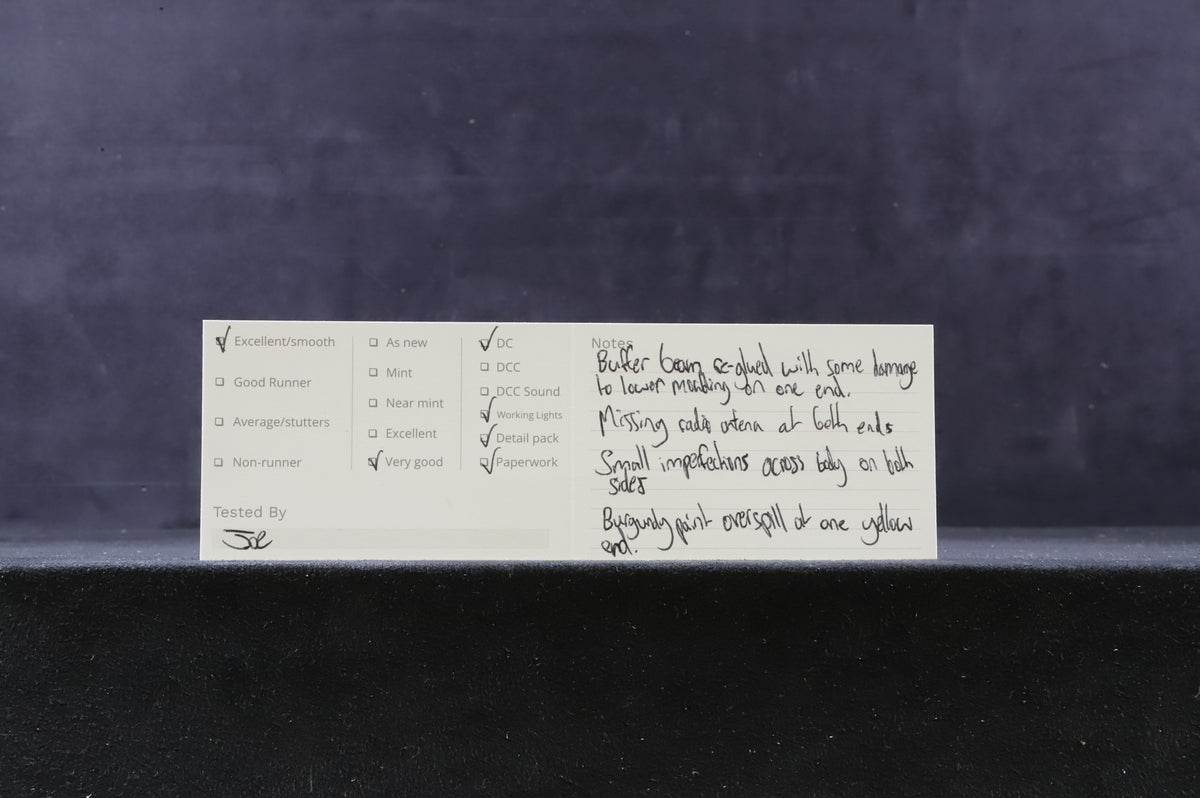 Excellent/smooth
Good Runner
Average/stutters
Non-runner
As new
Mint
Near mint
Excellent
Very good
DC
DCC
DCC Sound
Working Lights
Detail pack
Paperwork
Tested By
Joe
Notes
Buffer beam re-glued with some damage
to lower moulding on one end.
Missing radio antena at both ends
Small imperfections across body on both
sides
Burgundy paint overspill at one yellow
end.